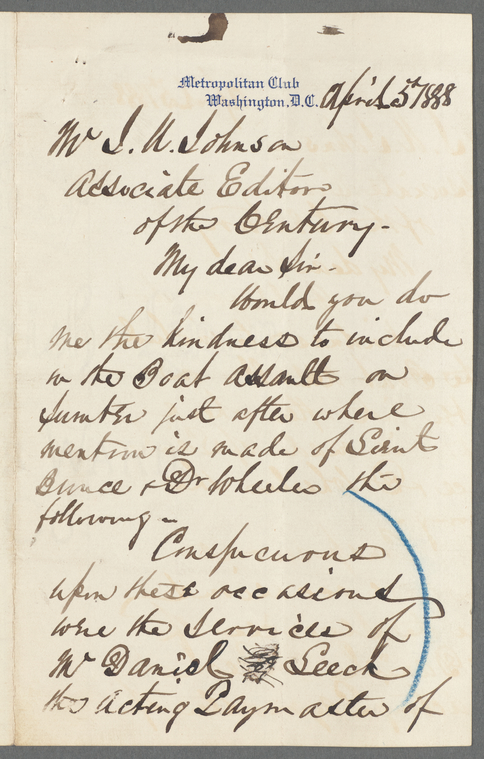 Metropolitan Club
Washington, D.C. April 5th 1888
Mr J. U. Johnson
Associate Editor
of the Century -
My dear Sir -
Would you do
me the kindness to include
in the Boat assault on
Sumter just after where
mention is made of Lieut
Bunce & Dr Wheeler the
following -
Conspicuous
upon these occasions
were the services of
Mr Daniel Leech
the acting Paymaster of